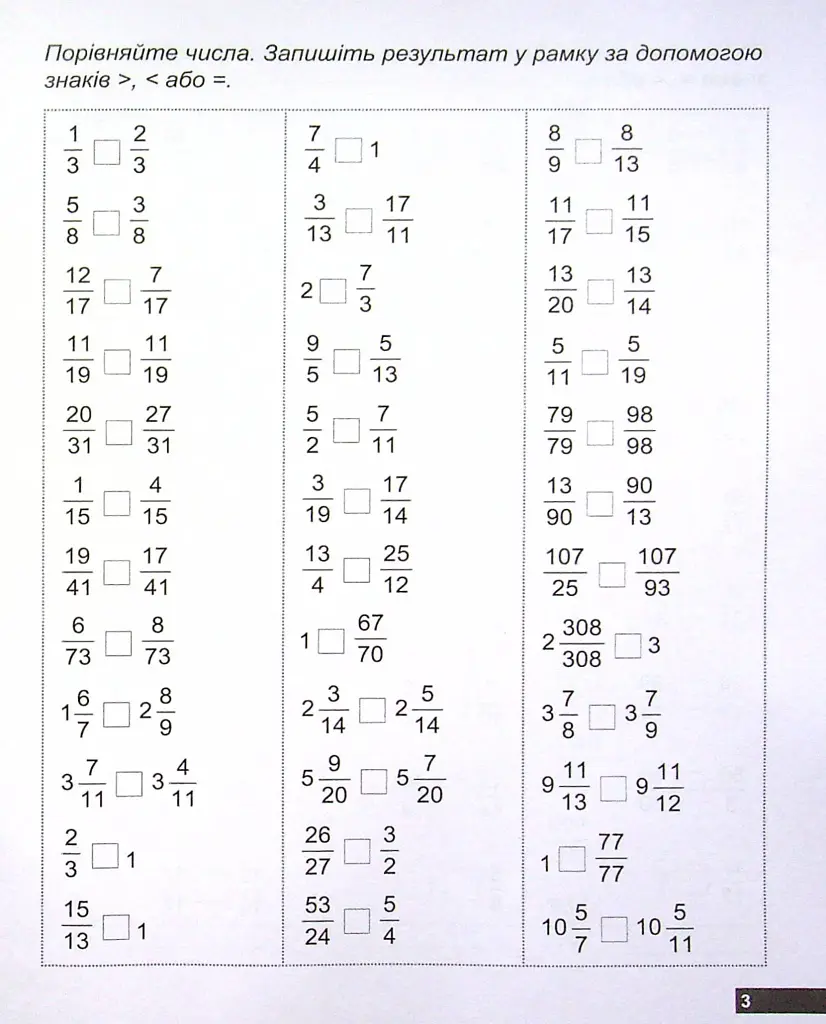 Порівняйте числа. Запишіть результат у рамку за допомогою
знаків >, < або =.
1/3 □ 2/3
5/8 □ 3/8
12/17 □ 7/17
11/19 □ 11/19
20/31 □ 27/31
1/15 □ 4/15
19/41 □ 17/41
6/73 □ 8/73
1 6/7 □ 2 8/9
3 7/11 □ 3 4/11
2/3 □ 1
15/13 □ 1
7/4 □ 1
3/13 □ 17/11
2 □ 7/3
9/5 □ 5/13
5/2 □ 7/11
3/19 □ 17/14
13/4 □ 25/12
1 □ 67/70
2 3/14 □ 2 5/14
5 9/20 □ 5 7/20
26/27 □ 3/2
53/24 □ 5/4
8/9 □ 8/13
11/17 □ 11/15
13/20 □ 13/14
5/11 □ 5/19
79/79 □ 98/98
13/90 □ 90/13
107/25 □ 107/93
2 308/308 □ 3
3 7/8 □ 3 7/9
9 11/13 □ 9 11/12
1 □ 77/77
10 5/7 □ 10 5/11
3